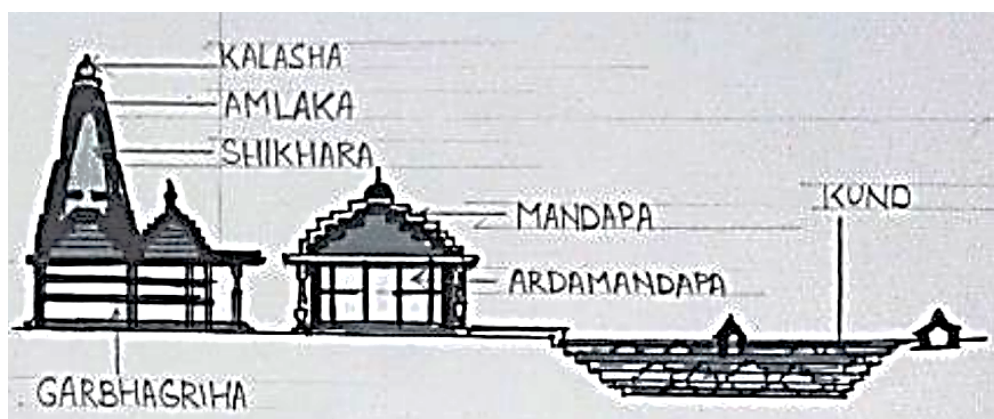 KALASHA
AMLAKA
SHIKHARA
MANDAPA
KUND
ARDAMANDAPA
GARBHAGRIHA